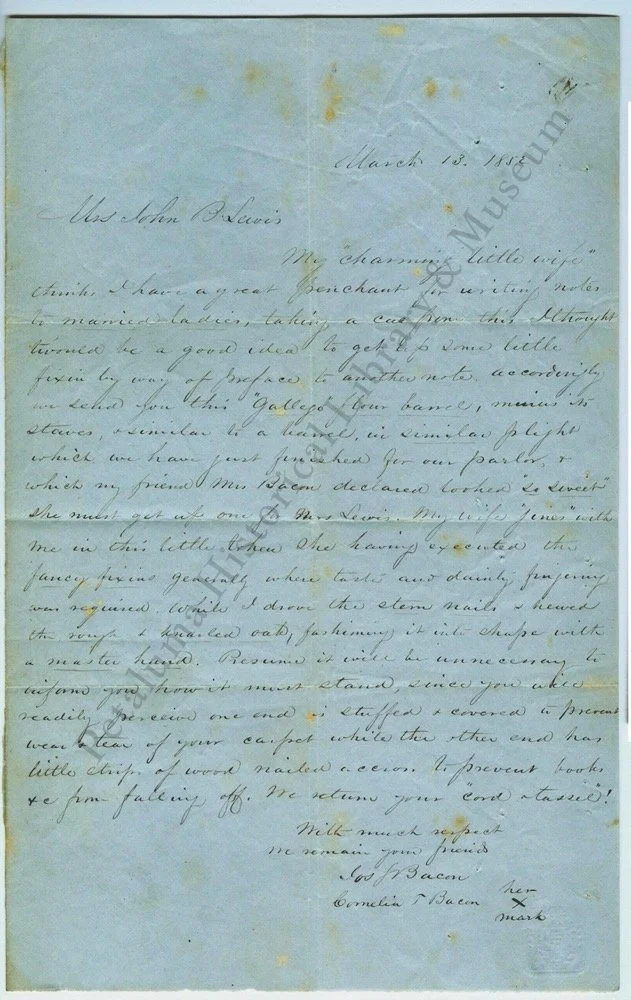 March 13. 185
Mrs John B Lewis
My "charming little wife"
thinks I have a great penchant for writing notes
to married ladies, taking a cue from this I thought
twould be a good idea to get up some little
fixin by way of preface to another note. accordingly
we send you this "Gallego" flour barrel, minus its
staves, & similar to a barrel, in similar plight
which we have just finished for our parlor, &
which my friend Mrs Bacon declared looked "so sweet"
she must get up one Mrs Lewis. My wife "jines" with
me in this little She having executed the
fancy fixins generally where taste and dainty fingering
was required. While I drove the stern nails & hewed
the rough & knarled oak, fashioning it into shape with
a master hand. Presume it will be unnecessary to
inform you how it must stand, since you will
readily perceive one end is stuffed & covered to prevent
wear & tear of your carpet while the other end has
little strips of wood nailed across to prevent books
&c from falling off. We return your "cord & tassel"!
With much respect
We remain your friends
Jos J Bacon
Cornelia T Bacon her
X
mark
Petaluma Historical Library & Museum